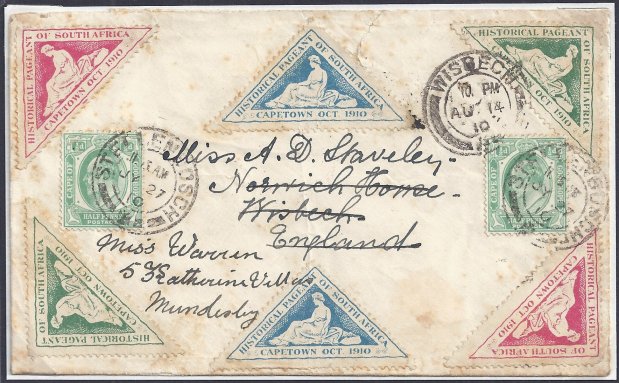 HISTORICAL PAGEANT OF SOUTH AFRICA
CAPETOWN OCT. 1910
HISTORICAL PAGEANT OF SOUTH AFRICA
CAPETOWN OCT. 1910
HISTORICAL PAGEANT OF SOUTH AFRICA
CAPETOWN OCT. 1910
WISBECH
10 PM
AU 14
10
CAPE OF
HALFPENNY
POSTAGE
STELLENBOSCH
AM
27
10
HALFPENNY
Miss A. D. Staveley
Norwich House
Wisbech
England
Miss Warren
5 Katherine Villas
Mundesley
HISTORICAL PAGEANT OF SOUTH AFRICA
CAPETOWN OCT 1910
HISTORICAL PAGEANT OF SOUTH AFRICA
CAPETOWN OCT. 1910
HISTORICAL PAGEANT OF SOUTH AFRICA
CAPETOWN OCT. 1910